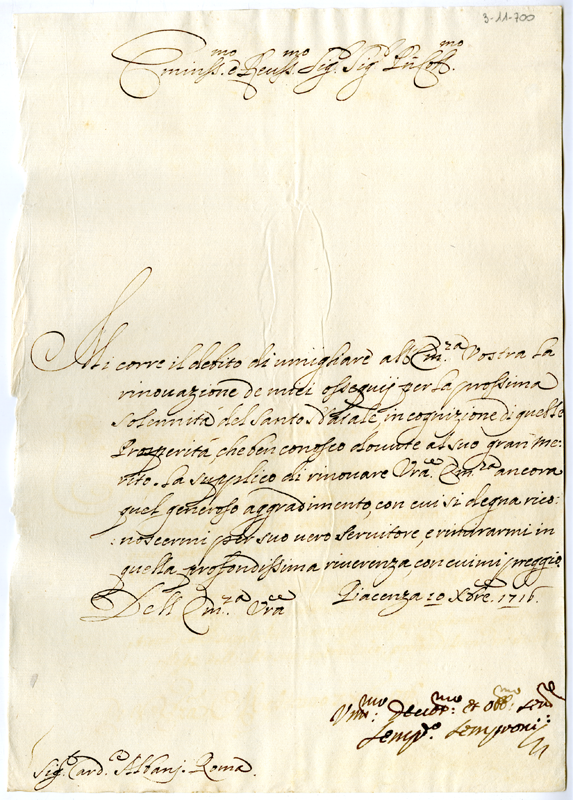 3-11-700
Eminss.mo e Reuss.mo Sig.r Sig.r P̃ñ Col.mo
Mi corre il debito di umigliare all'Em.za Vostra la
rinouazione de miei ossequij per la prossima
solennità del Santo Natale, in cognizione di quelle
Prosperità, che ben conosco douute al suo gran me-
rito. La supplico di rinouare Vra. Em.za ancora
quel generoso aggradimento, con cui si degna rico:
:noscermi per suo uero seruitore, e rimirarmi in
quella profondissima riuerenza, con cui mi preggio
Dell'Em.za Vra Piacenza 10 Xbre. 1716.
Vmi:mo Deuot:mo et Obb:mo Ser:re
Semp.o Semproni
Sig.r Card. Albanj. Roma.